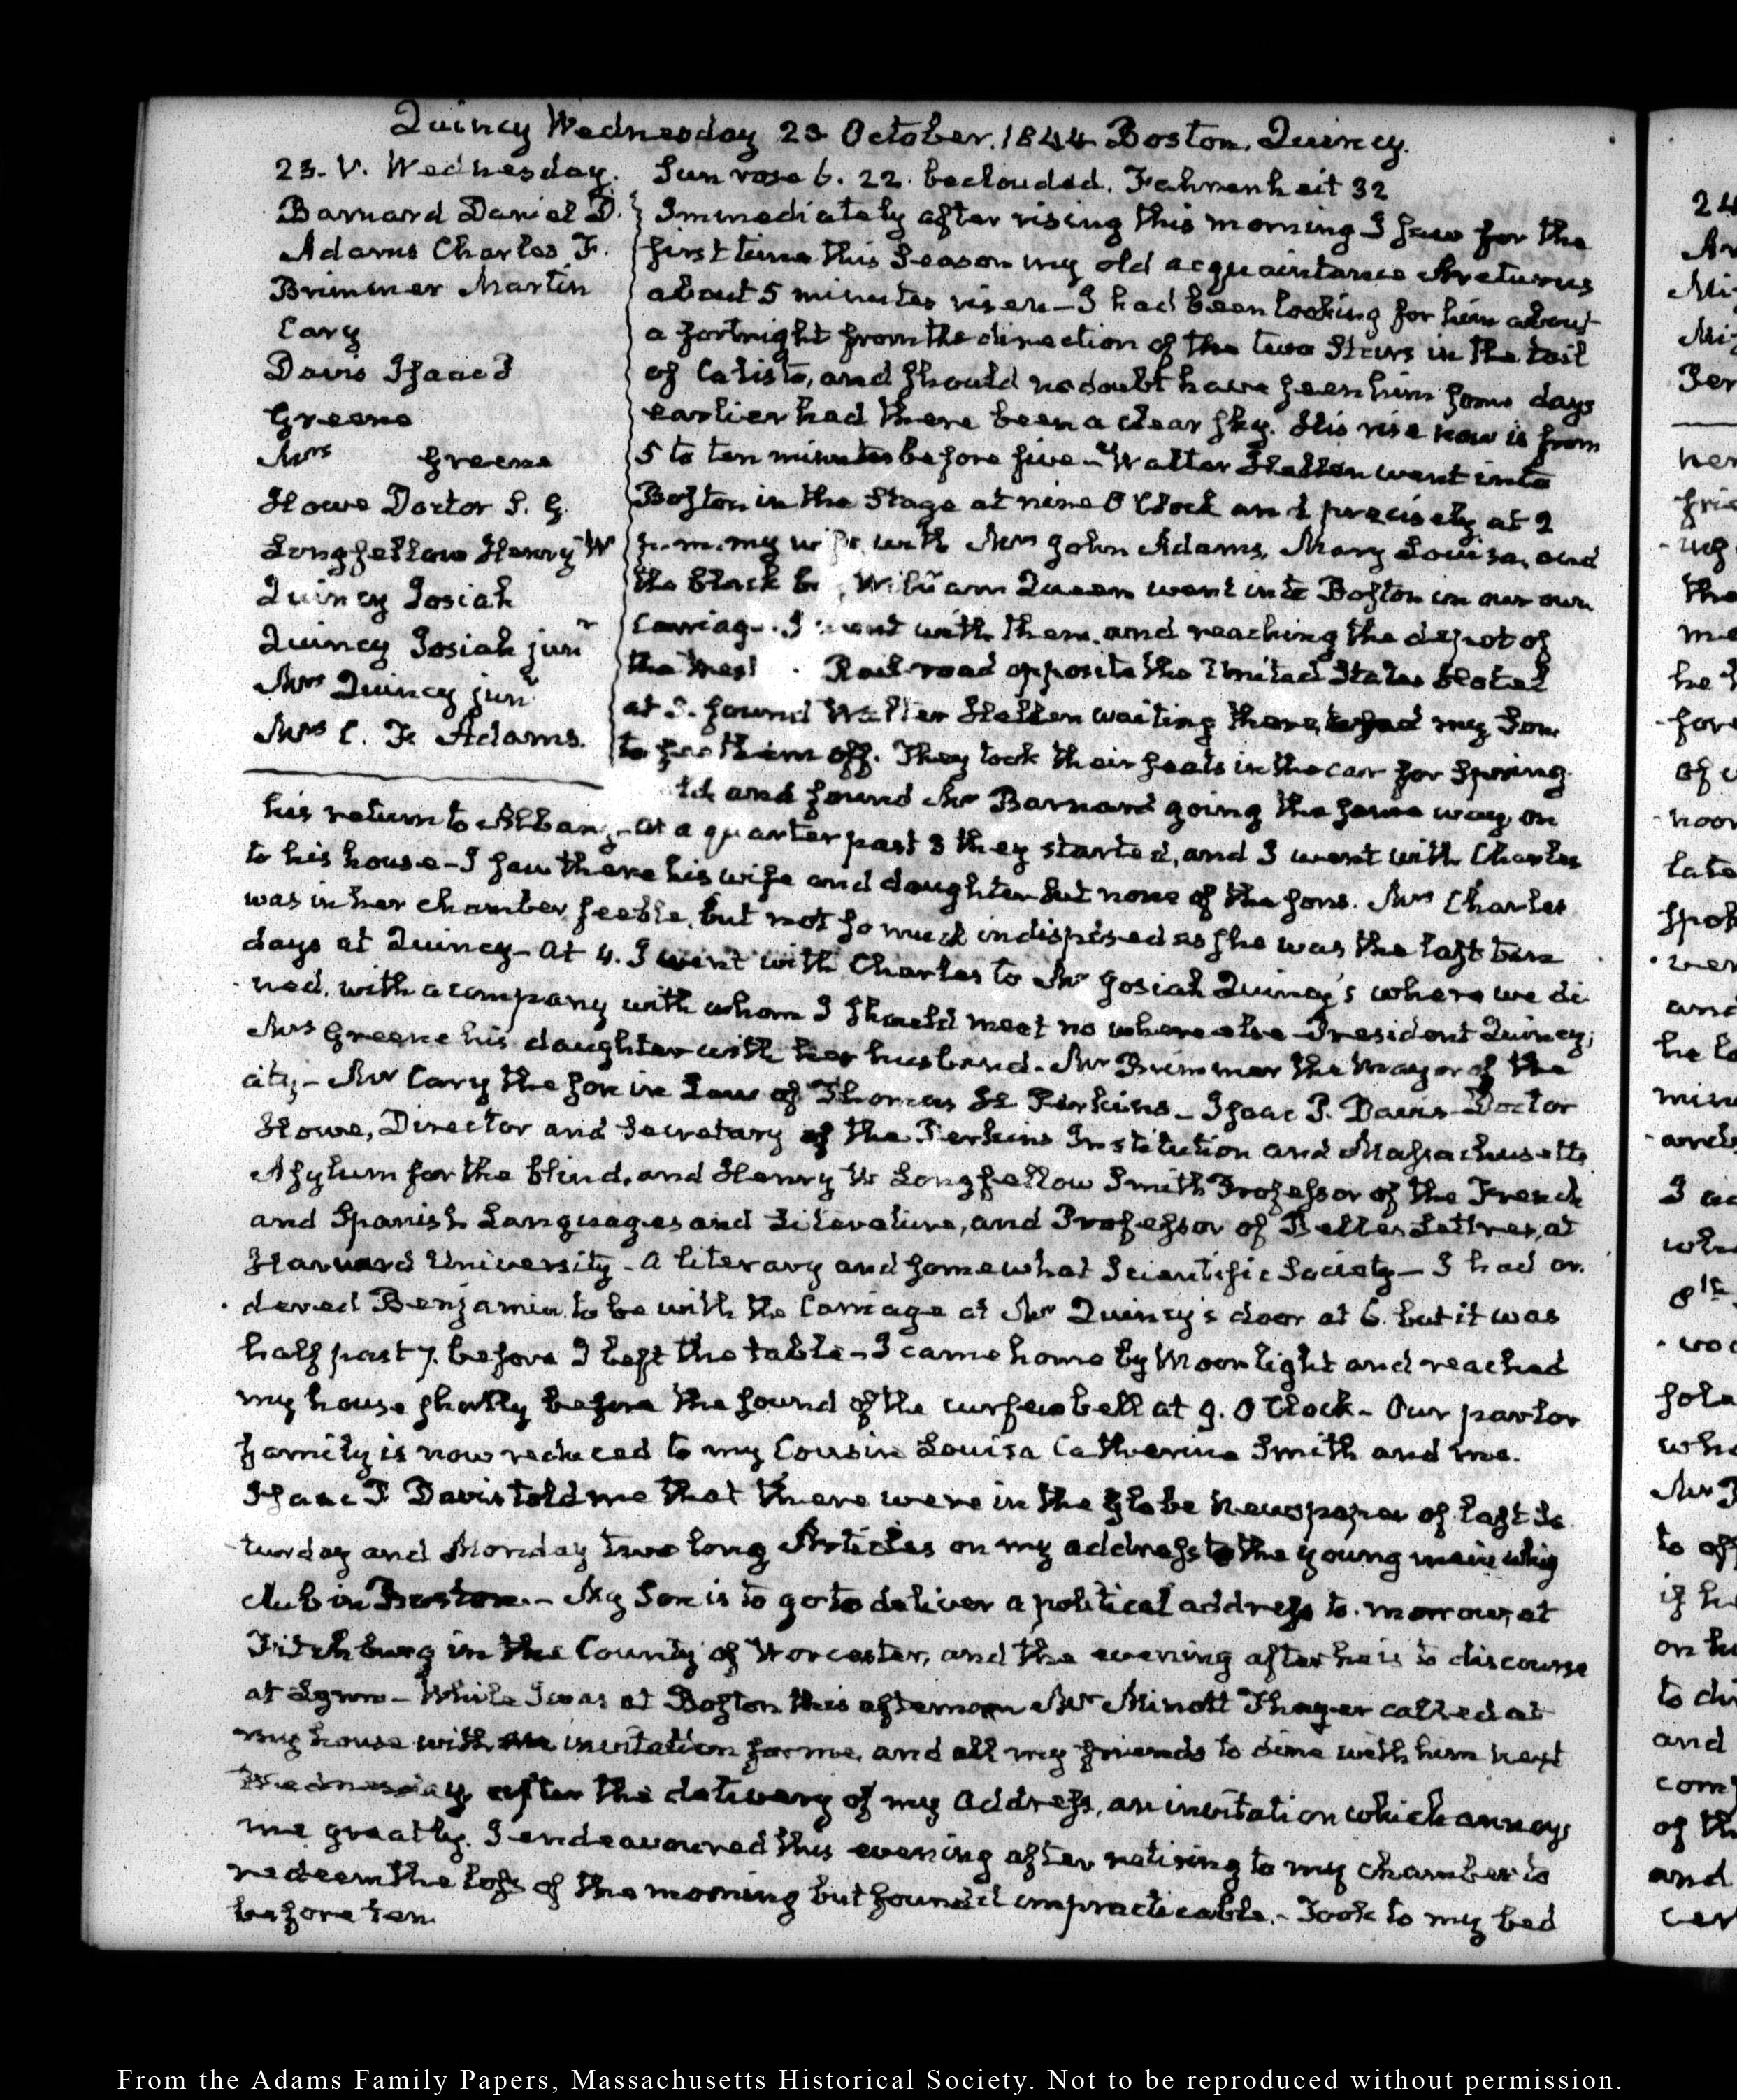 Quincy Wednesday 23 October. 1844 Boston, Quincy.
23. V. Wednesday.
Barnard Daniel D.
Adams Charles F.
Brimmer Martin
Cary
Davis Isaac P
Greene
Mrs Greene
Howe Doctor S. G.
Longfellow Henry W
Quincy Josiah
Quincy Josiah junr
Mrs Quincy junr
Mrs C. F. Adams.
Sun rose 6. 22. beclouded. Fahrenheit 32
Immediately after rising this morning I saw for the
first time this Season my old acquaintance Arcturus
about 5 minutes risen – I had been looking for him about
a fortnight from the direction of the two Stars in the tail
of Calisto, and should no doubt have seen him some days
earlier had there been a clear sky. His rise now is from
5 to ten minutes before five – Walter Hellen went into
Boston in the Stage at nine O'Clock and precisely at 2
p.m. my wife, with Mrs John Adams, Mary Louisa, and
the black William Queen went into Boston in our own
Carriage. I went with them, and reaching the depot of
the Rail-road opposite the United States Hotel
at 3. found Walter Hellen waiting there, my Son
to see them off. They took their seats in the car for Spring
and found Mr Barnard going the same way, on
his return to Albany – at a quarter past 3 they started, and I went with Charles
to his house – I saw there his wife and daughter but none of the sons. Mrs Charles
was in her chamber, feeble, but not so much indisposed as she was the last two
days at Quincy – At 4. I went with Charles to Mr Josiah Quincy's where we di-
ned, with a company with whom I should meet no where else – President Quincy,
Mrs Greene his daughter with her husband – Mr Brimmer the Mayor of the
city – Mr Cary the son in Law of Thomas H. Perkins – Isaac P. Davis – Doctor
Howe, Director and Secretary of the Perkins Institution and Massachusetts
Asylum for the blind, and Henry W Longfellow Smith Professor of the French
and Spanish Languages and Literature, and Professor of Belles Lettres, at
Harvard University – A literary and somewhat Scientific Society – I had or-
dered Benjamin to be with the Carriage at Mr Quincy's door at 6. but it was
half past 7. before I left the table – I came home by Moon light and reached
my house shortly before the sound of the curfew bell at 9. O'Clock – Our parlor
family is now reduced to my Cousin Louisa Catherine Smith and me.
Isaac P Davis told me that there were in the Globe Newspaper of last Sa-
turday and Monday two long Articles on my address to the young men's whig
club in Boston. – My Son is to go to deliver a political address to-morrow, at
Fitchburg in the County of Worcester, and the evening after he is to discourse
at Lynn – While I was at Boston this afternoon Mr Minott Thayer called at
my house with an invitation for me, and all my friends to dine with him next
Wednesday after the delivery of my Address, an invitation which annoys
me greatly. I endeavoured this evening after retiring to my chamber to
redeem the loss of the morning but found it impracticable. – Took to my bed
before ten.
24
From the Adams Family Papers, Massachusetts Historical Society. Not to be reproduced without permission.